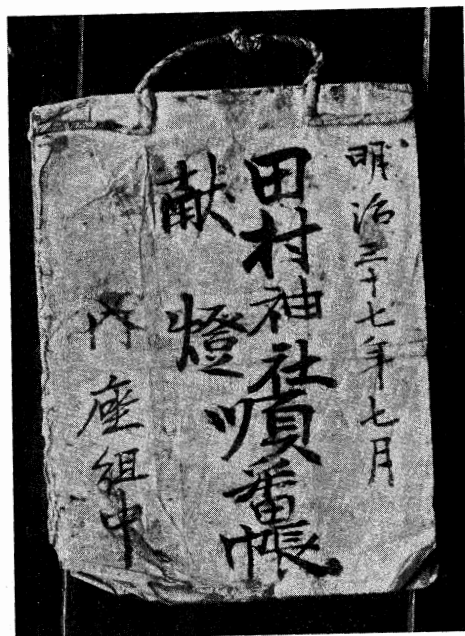 明治三十七年七月
田村神社順番帳
献燈
内座組中